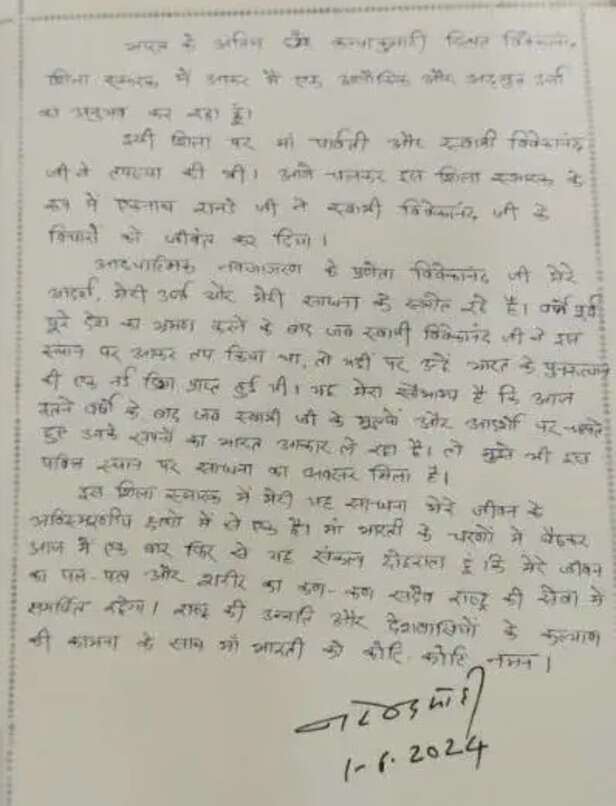 भारत के अंतिम छोर कन्याकुमारी स्थित विवेकानंद
शिला स्मारक में आकर मैं एक अलौकिक और अद्भुत ऊर्जा
का अनुभव कर रहा हूँ।
इसी शिला पर माँ पार्वती और स्वामी विवेकानंद
जी ने तपस्या की थी। आगे चलकर इस शिला स्मारक के
रूप में एकनाथ रानडे जी ने स्वामी विवेकानंद जी के
विचारों को जीवंत कर दिया।
आध्यात्मिक नवजागरण के प्रणेता विवेकानंद जी मेरे
आदर्श, मेरी ऊर्जा और मेरी साधना के स्त्रोत रहे हैं। वर्षों पूर्व
पूरे देश का भ्रमण करने के बाद जब स्वामी विवेकानंद जी ने इस
स्थान पर आकर तप किया था, तो यहीं पर उन्हें भारत के पुनरुत्थान
की एक नई दिशा प्राप्त हुई थी। यह मेरा सौभाग्य है कि आज
इतने वर्षों के बाद जब स्वामी जी के मूल्यों और आदर्शों पर चलते
हुए उनके सपनों का भारत आकार ले रहा है। तो मुझे भी इस
पवित्र स्थान पर साधना का अवसर मिला है।
इस शिला स्मारक में मेरी यह साधना मेरे जीवन के
अविस्मरणीय क्षणों में से एक है। माँ भारती के चरणों में बैठकर
आज मैं एक बार फिर से यह संकल्प दोहराता हूं कि मेरे जीवन
का पल-पल और शरीर का कण-कण सदैव राष्ट्र की सेवा में
समर्पित रहेगा। राष्ट्र की उन्नति और देशवासियों के कल्याण
की कामना के साथ माँ भारती को कोटि-कोटि नमन।
नरेन्द्र मोदी
1-6.2024